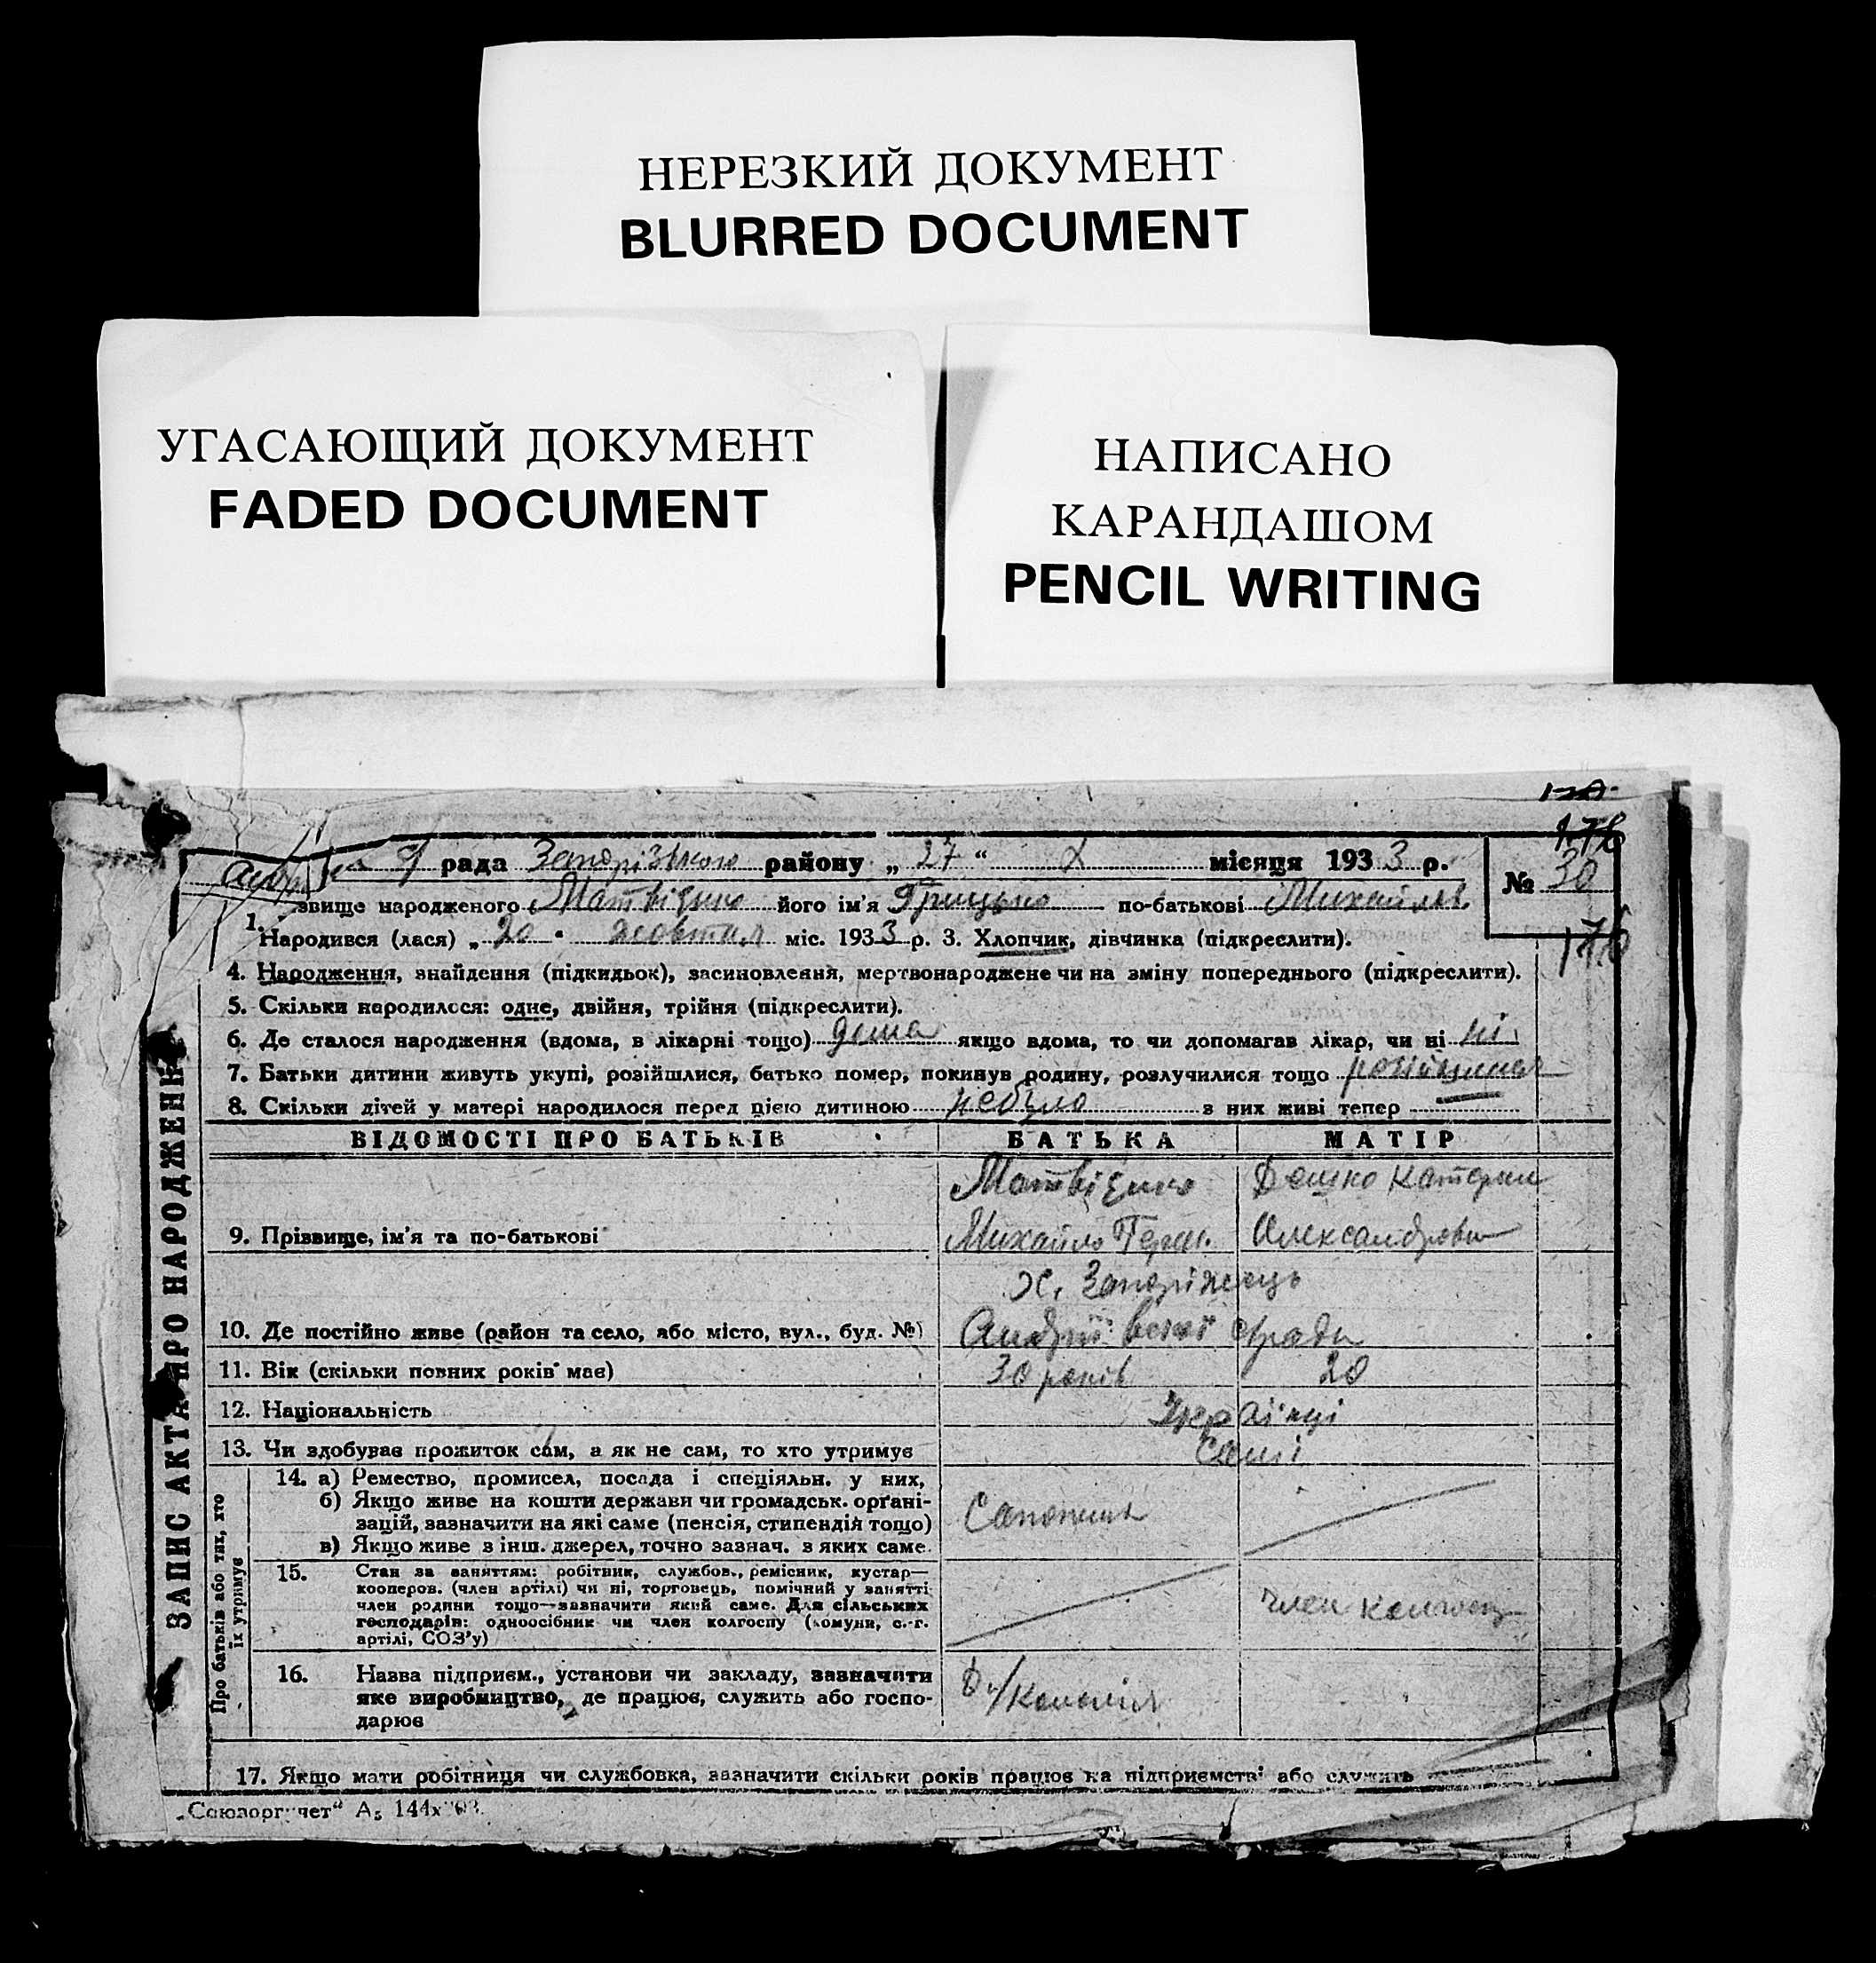 НЕРЕЗКИЙ ДОКУМЕНТ
BLURRED DOCUMENT
УГАСАЮЩИЙ ДОКУМЕНТ
FADED DOCUMENT
НАПИСАНО
КАРАНДАШОМ
PENCIL WRITING
176
рада Запорізького району „ 27 “ X місяця 1933 р.
№ 30
звище народженого Матвієнко його ім'я Грицько по-батькові Михайлов.
176
1. Народився (лася) „ 20 “ жовтня міс. 1933 р. 3. Хлопчик, дівчинка (підкреслити).
4. Народження, знайдення (підкидьок), засиновлення, мертвонароджене чи на зміну попереднього (підкреслити).
5. Скільки народилося: одне, двійня, трійня (підкреслити).
6. Де сталося народження (вдома, в лікарні тощо) дома якщо вдома, то чи допомагав лікар, чи ні ні
7. Батьки дитини живуть укупі, розійшлися, батько помер, покинув родину, розлучилися тощо
8. Скільки дітей у матері народилося перед цією дитиною небуло з них живі тепер
ЗАПИС АКТА ПРО НАРОДЖЕННЯ
ВІДОМОСТІ ПРО БАТЬКІВ БАТЬКА МАТІР
Матвієнко Катерин
9. Прізвище, ім'я та по-батькові Михайло Олександровн
х. Запоріжець
10. Де постійно живе (район та село, або місто, вул., буд. №) с/ради
11. Вік (скільки повних років має) 30 років 20
12. Національність Українці
13. Чи здобуває прожиток сам, а як не сам, то хто утримує Самі
Про батьків або тих, хто їх утримує
14. а) Ремество, промисел, посада і спеціяльн. у них,
б) Якщо живе на кошти держави чи громадськ. органі-
зацій, зазначити на які саме (пенсія, стипендія тощо)
в) Якщо живе з інш. джерел, точно зазнач. з яких саме.
15. Стан за заняттям: робітник, службов., ремісник, кустар—
кооперов. (член артілі) чи ні, торговець, помічний у занятті
член родини тощо—зазначити який саме. Для сільських
господарів: одноосібник чи член колгоспу (комуни, с.-г.
артілі, СОЗ'у)
член колгосп
16. Назва підприєм., установи чи закладу, зазначити
яке виробництво, де працює, служить або госпо-
дарює
17. Якщо мати робітниця чи службовка, зазначити скільки років працює на підприємстві або служить